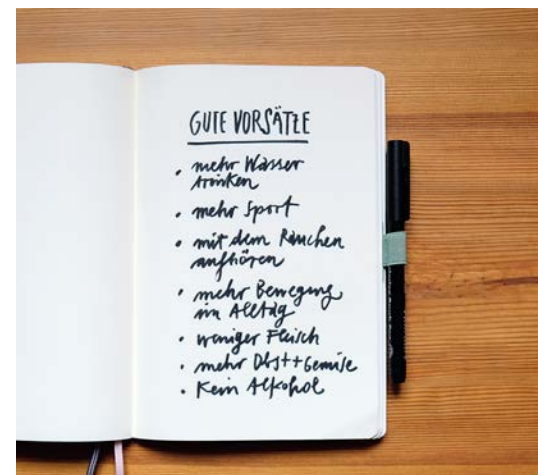 GUTE VORSÄTZE
• mehr Wasser
trinken
• mehr Sport
• mit dem Rauchen
aufhören
• mehr Bewegung
im Alltag
• weniger Fleisch
• mehr Obst + Gemüse
• Kein Alkohol